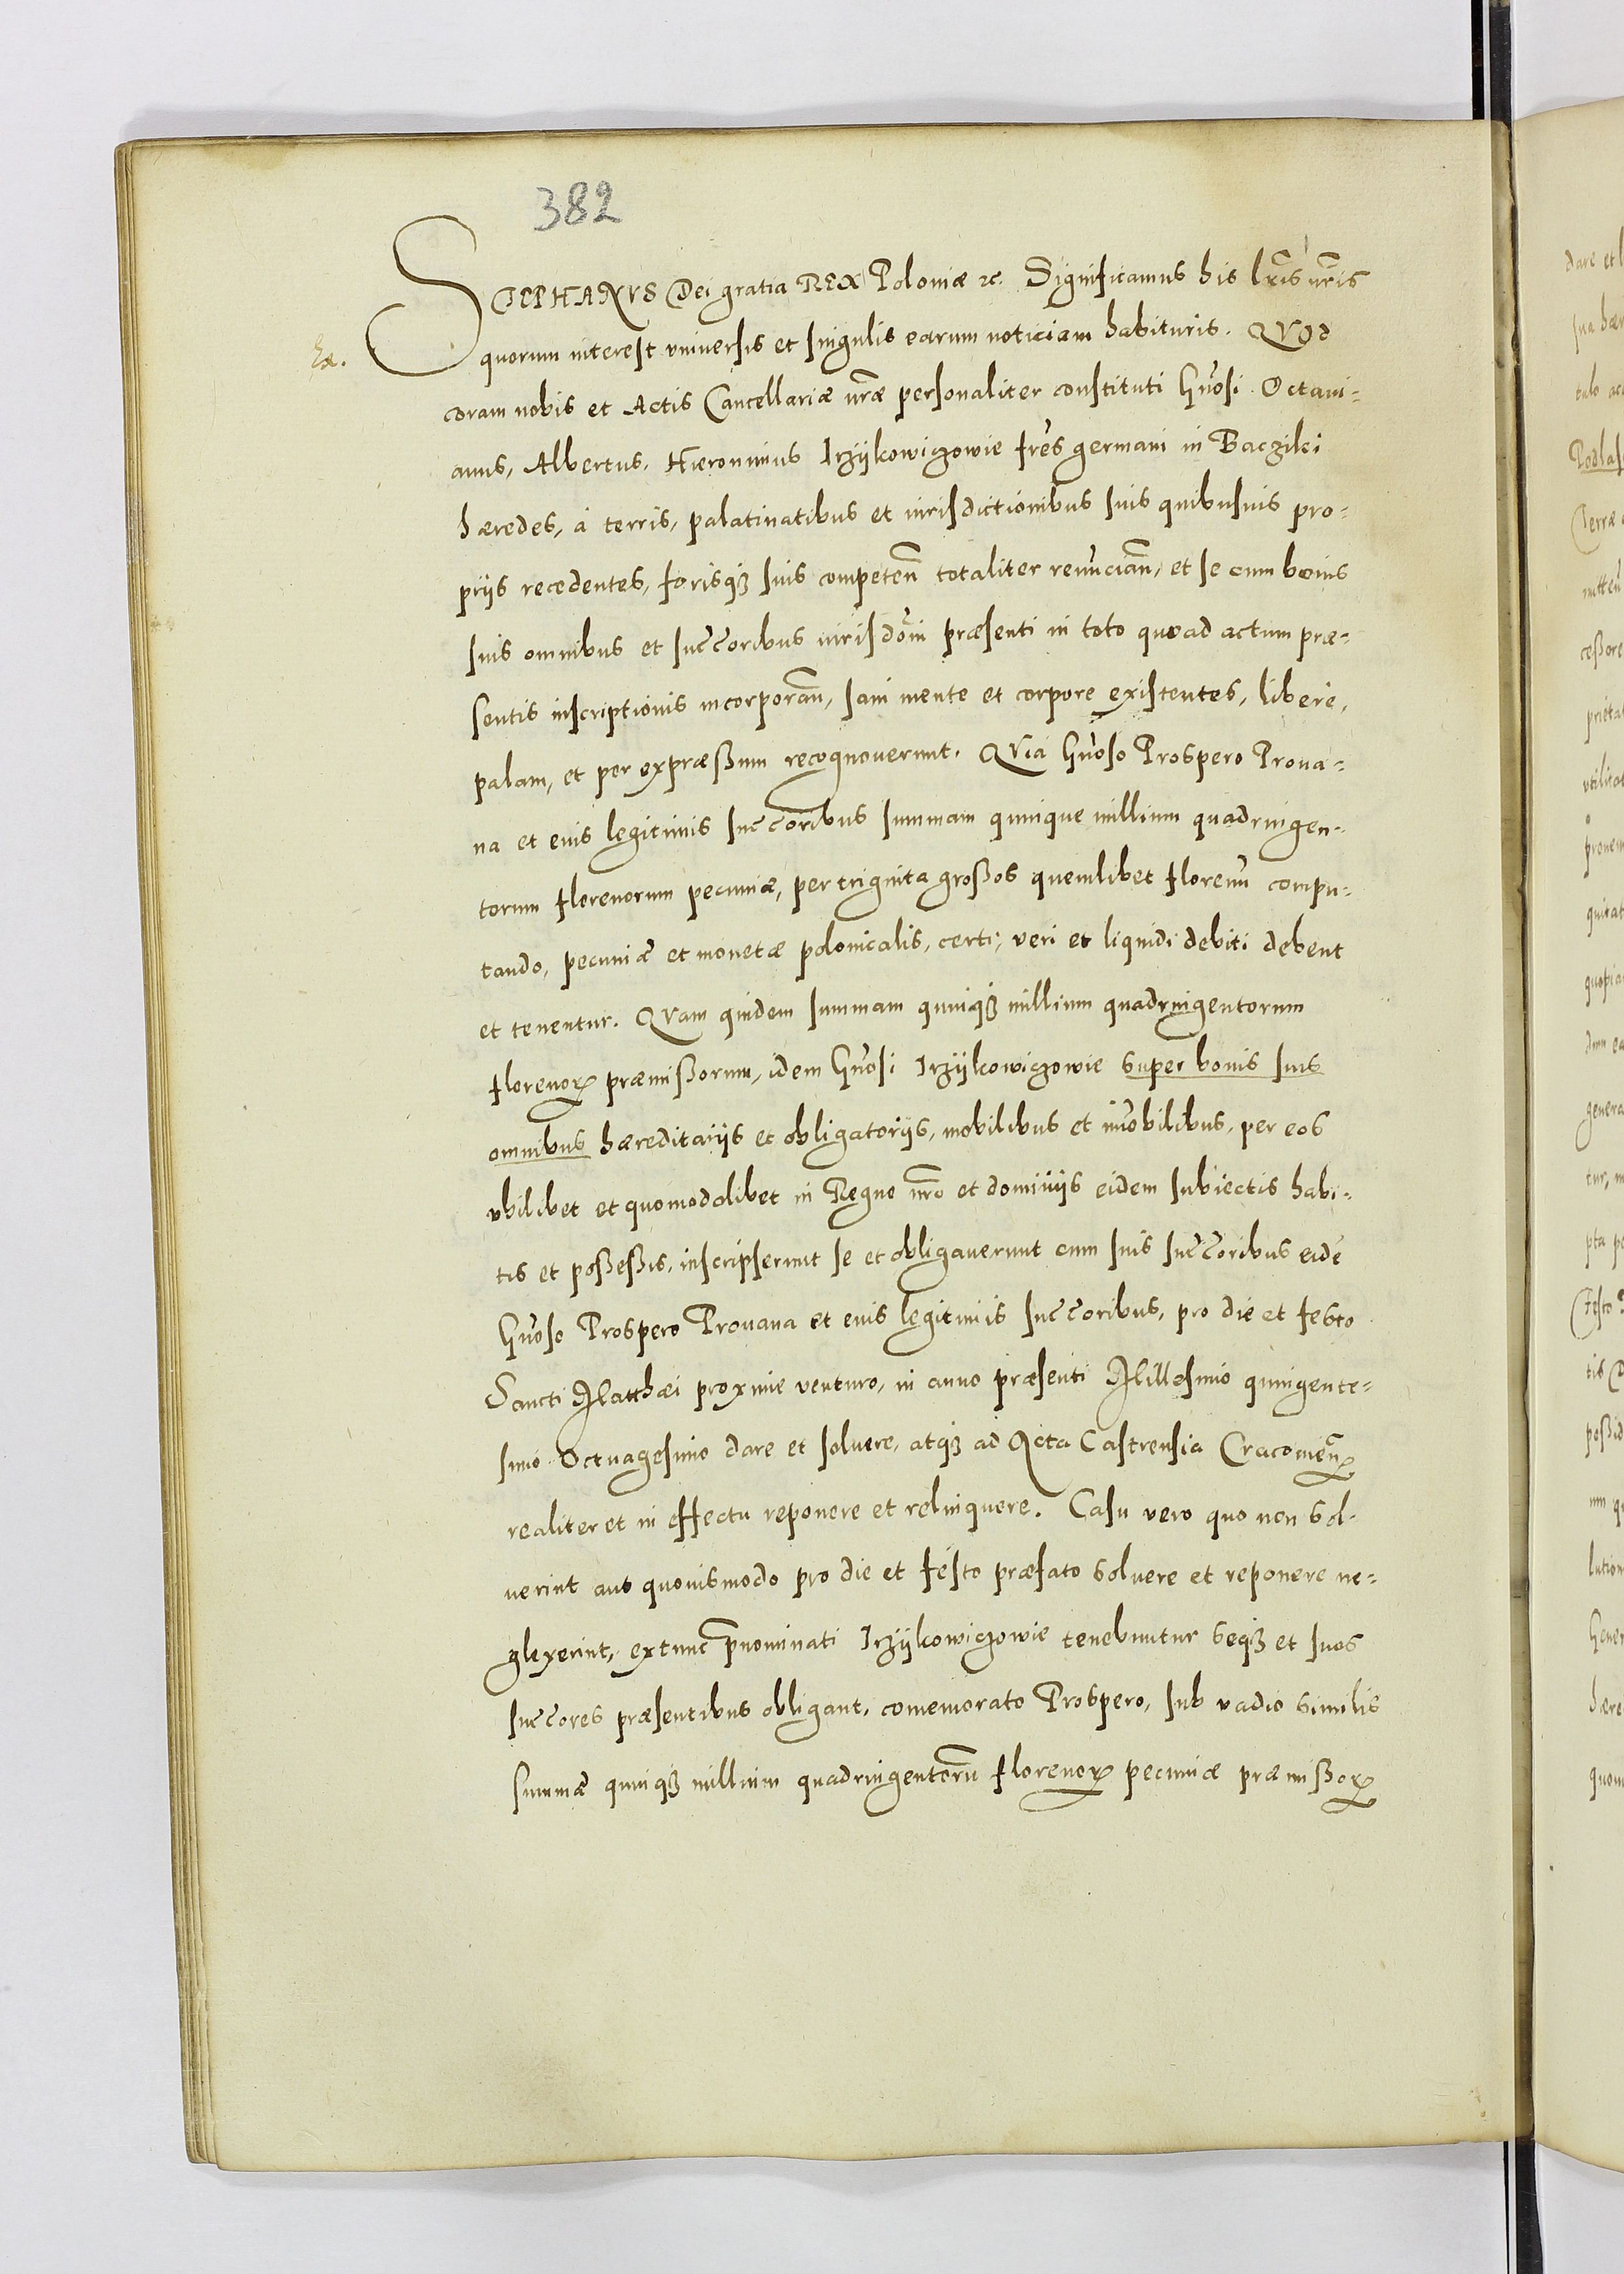 382
STEPHANVS Dei gratia REX Poloniæ zc. Significamus his lr̃is nr̃is
Ex.
quorum interest vniuersis et singulis earum noticiam habituris. QVod
coram nobis et Actis Cancellariæ nr̃æ personaliter constituti Gn̄osi Octaui=
anus, Albertus, Hieronimus Irzÿkowiczowie fr̃es germani in Baczilki
hæredes, à terris, palatinatibus et iurisdictionibus suis quibusuis pro=
prijs recedentes, forisq₃ suis competeñ totaliter renunciañ, et se cum bonis
suis omnibus et succ̃oribus iurisdõni præsenti in toto quoad actum præ=
sentis inscriptionis incorporañ, sani mente et corpore existentes, libere,
palam, et per expræßum recognouerunt. QVia Gn̄oso Prospero Proua=
na et eius legitimis succ̃oribus summam quinque millium quadringen=
torum florenorum pecuniæ, per triginta großos quemlibet florenū compu=
tando, pecuniæ et monetæ polonicalis, certi, veri et liquidi debiti debent
et tenentur. QVam quidem summam quinq₃ millium quadringentorum
florenoꝝ præmißorum, idem Gn̄osi Irzÿkowiczowie super bonis suis
omnibus hæreditarijs et obligatorijs, mobilibus et im̄obilibus, per eos
vbilibet et quomodolibet in Regno nr̃o et dominijs eidem subiectis habi=
tis et poßeßis, inscripserunt se et obligauerunt cum suis succ̃oribus eidē
Gn̄oso Prospero Prouana et eius legitimis succ̃oribus, pro die et festo
Sancti Matthæi proxime venturo, in anno præsenti Millesimo quingente=
simo Octuagesimo dare et soluere, atq₃ ad Acta Castrensia Cracouieñ
realiter et in effectu reponere et relinquere. Casu vero quo non sol=
uerint aut quouismodo pro die et festo præfato soluere et reponere ne=
glexerint, extunc p̄nominati Irzÿkowiczowie tenebuntur seq₃ et suos
succ̃ores præsentibus obligant, com̄emorato Prospero, sub vadio similis
summæ quinq₃ millium quadringentorū florenoꝝ pecuniæ præmißoꝝ